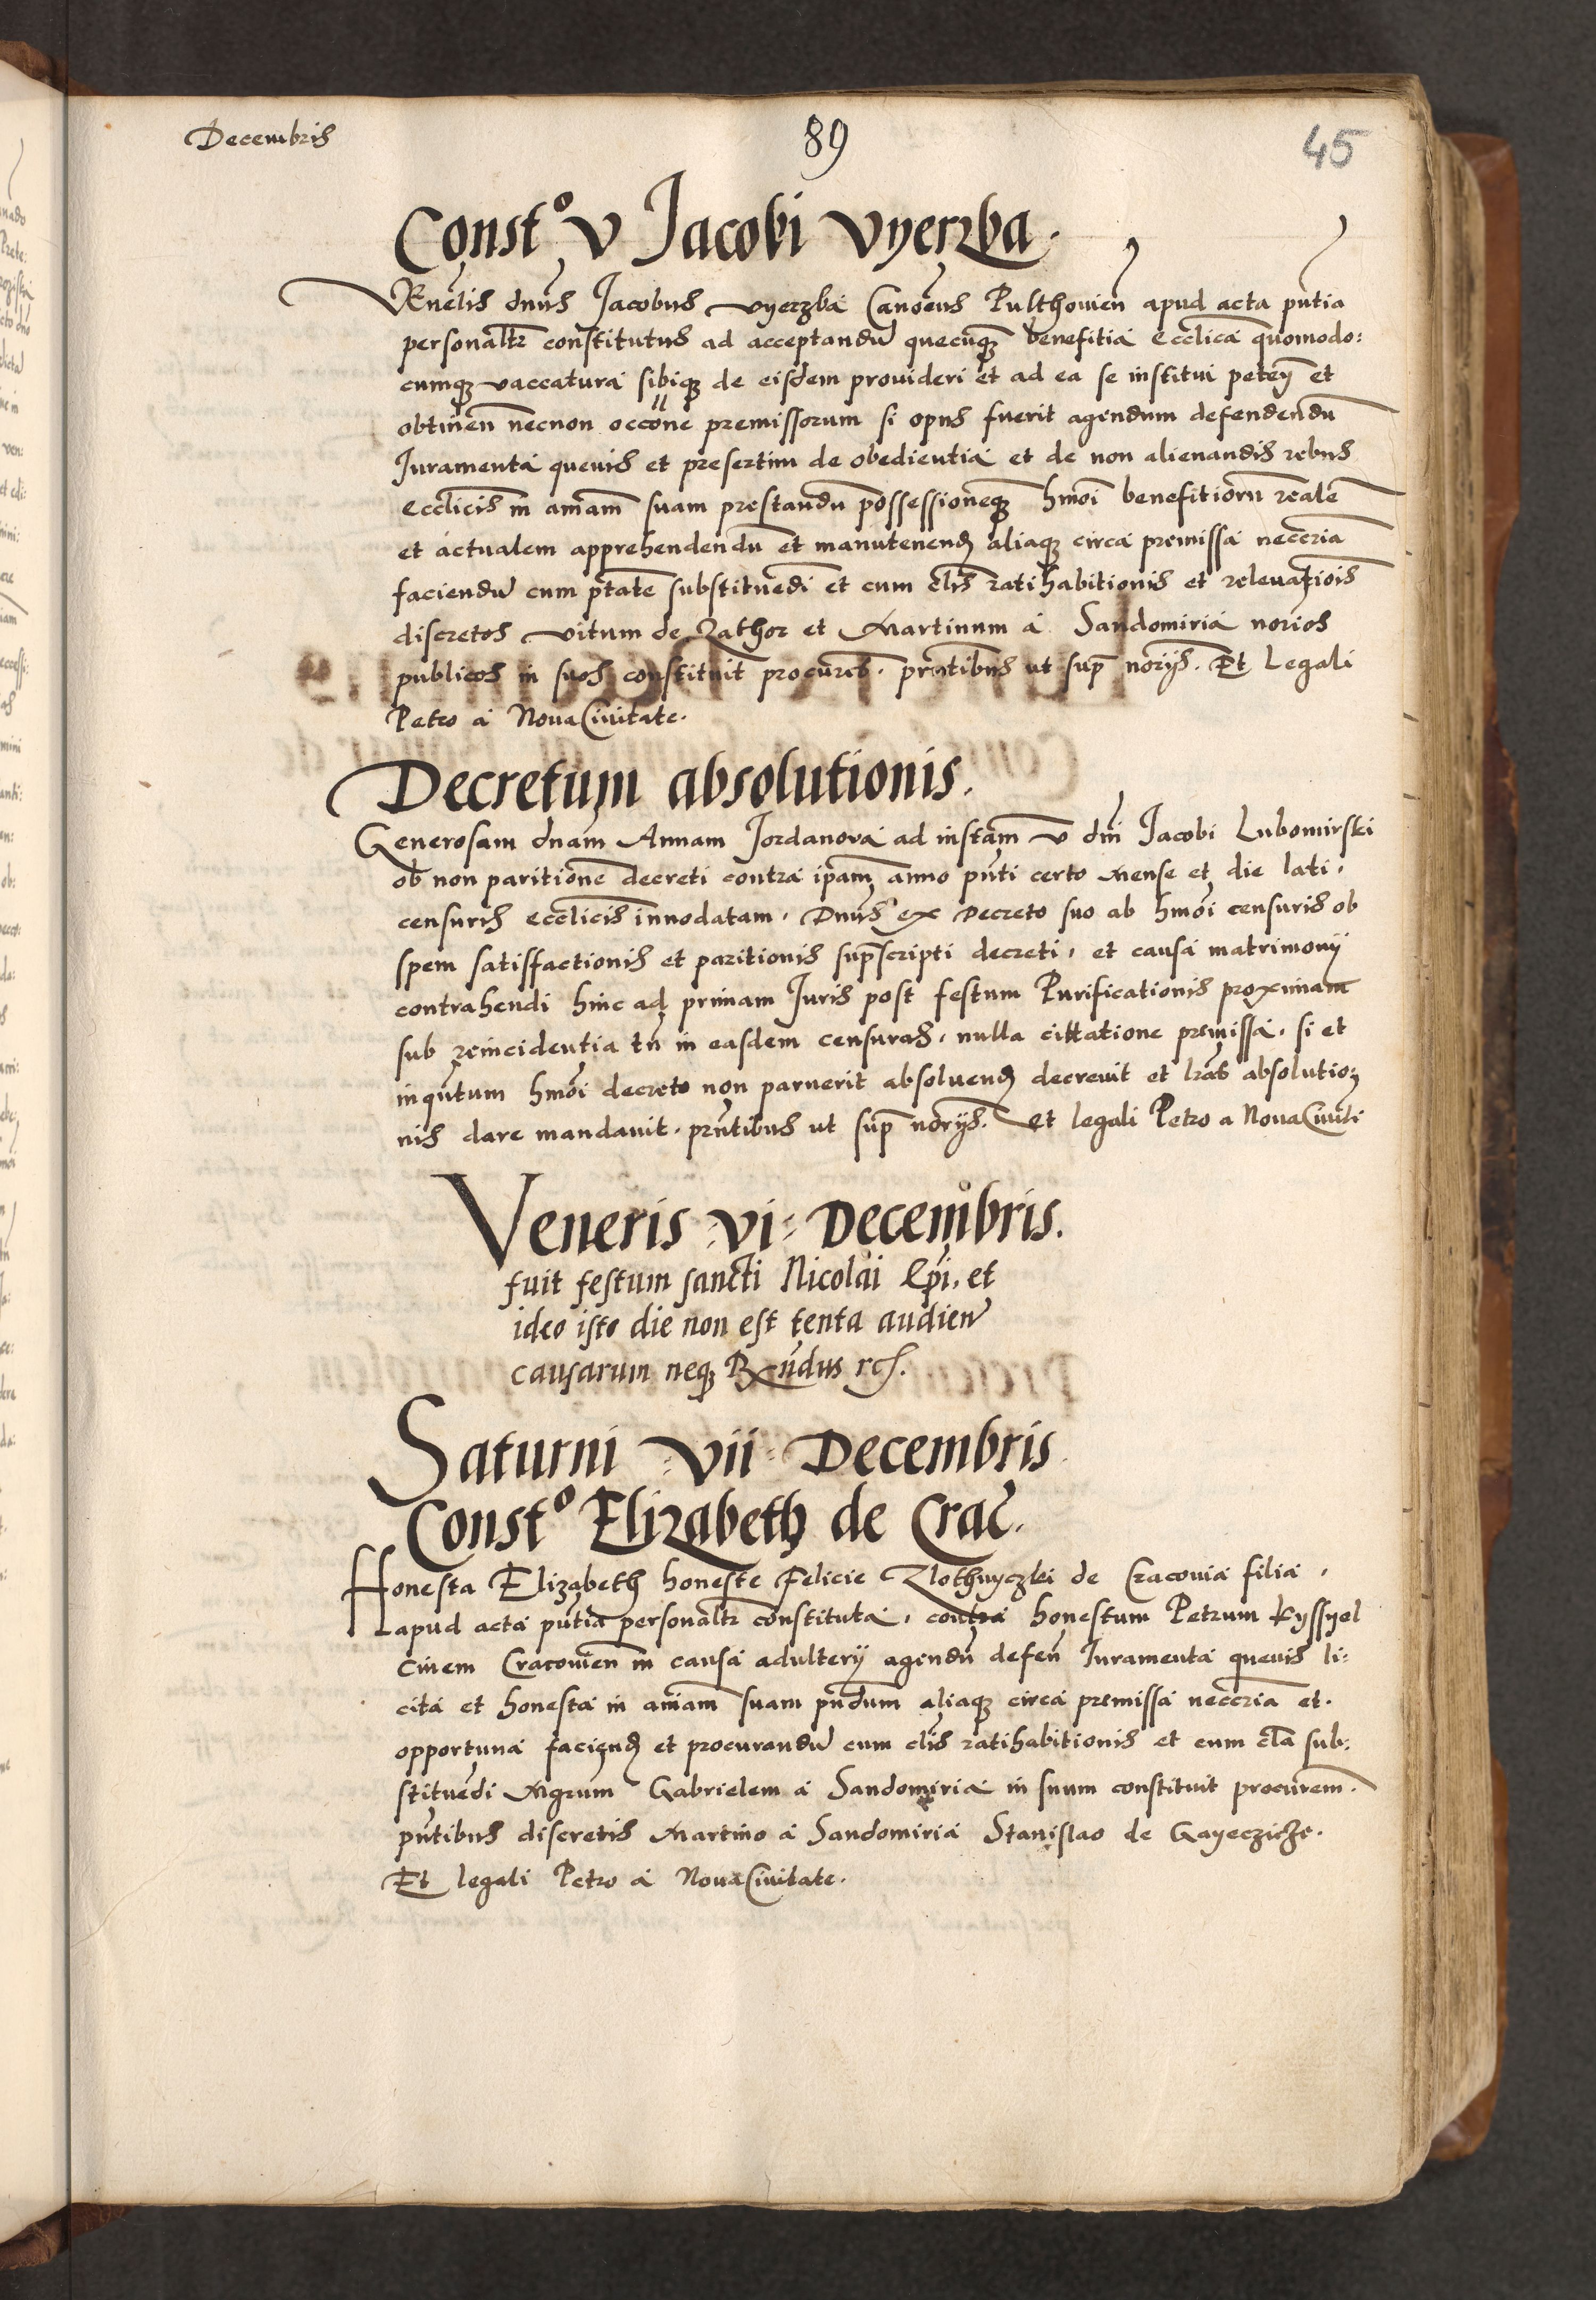 Decembris
89
45
Constᵒ v Jacobi vyerzba.
VEnēlis dnūs Jacobus vyerzba Canoēus Pulthouien̄ apud acta pūtia
personaltr̄ constitutus ad acceptandū quecūqꝫ benefitia ecclica quomodo:
cumqꝫ vaccatura sibiqꝫ de eisdem prouideri et ad ea se institui peten̄ et
obtinen̄ necnon occōne premissorum si opus fuerit agendum defendendū
Juramenta queuis et presertim de obedientia et de non alienandis rebus
ecclicis in aniam̄ suam prestandū possessioneqꝫ hmōi benefitiorū reale
et actualem apprehendendū et manutenend̄ aliaqꝫ circa premissa neccria
faciendū cum ptate substituedī et cum clīs ratihabitionis et releuatiōis
discretos vitum de Zathor et Martinum a Sandomiria norios
publicos in suos constituit procures. pr̄ntibus ut sup̄ norijs. Et Legali
Petro a NouaCiuitate.
Decretum absolutionis.
Generosam dnām Annam Jordanova ad instam̄ v dnī Jacobi Lubomirski
ob non paritionē decreti contra ipam̄ anno pūti certo mense et die lati.
censuris ecclicis innodatam. Dnūs ex Decreto suo ab hmōi censuris ob
spem satisfactionis et paritionis sup̄scripti decreti, et causa matrimonij
contrahendi hinc ad primam Juris post festum Purificationis proximam
sub reincidentia tn̄ in easdem censuras. nulla cittatione premissa. si et
inqūtum hmōi decreto non paruerit absoluend̄ decreuit et lras absolutio:
nis dare mandauit. prūtibus ut sup̄ norijs. Et legali Petro a NouaCiuiti
Veneris vi Decembris.
fuit festum sancti Nicolai Ep̄i. et
ideo isto die non est tenta audien̄
causarum neqꝫ Rx̄ndus rc̄.
Saturni vii Decembris
Constᵒ Elizabeth de Crac̄.
Honesta Elizabeth honeste Felicie Zlothnyczki de Cracouia filia,
apud acta pūtia personaltr̄ constituta, contra honestum Petrum Kyssyel
ciuem Cracouien̄ in causa adulterij agendū defen̄ Juramenta queuis li:
cita et honesta in aniam̄ suam pn̄dum aliaqꝫ circa premissa neccria et.
opportuna faciend̄ et procurandū cum clīs ratihabitionis et cum cla sub:
stituēdi Mgrum Gabrielem a Sandomiria in suum constituit procurem̄.
pūtibus discretis Martino a Sandomiria Stanislao de Gayeczicze.
Et legali Petro a NouaCiuitate.